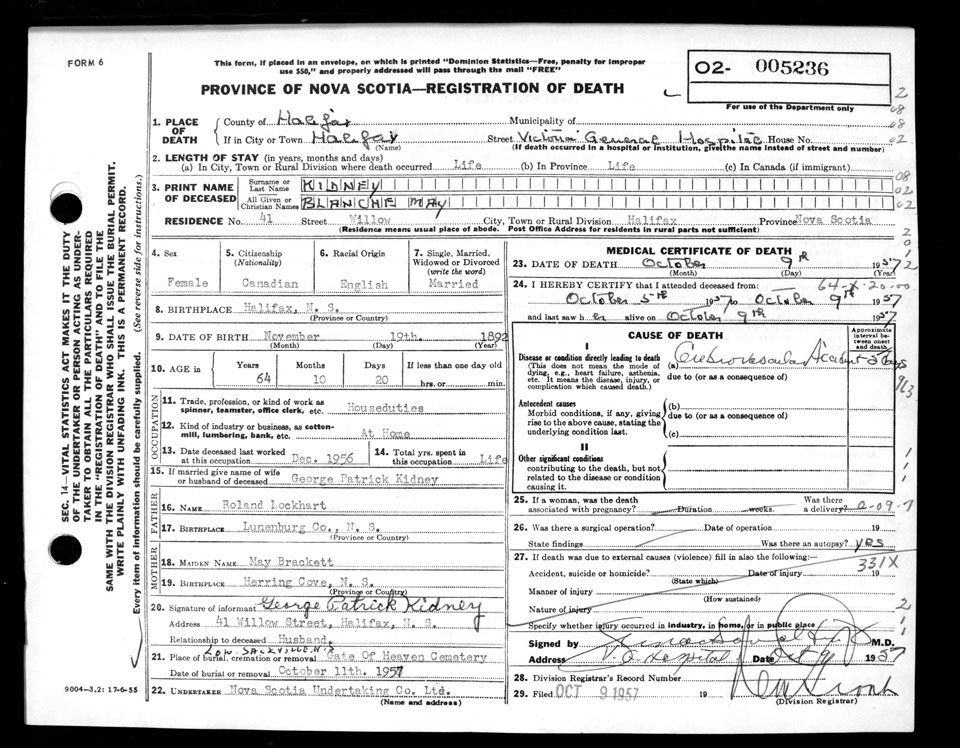 FORM 6
This form, if placed in an envelope, on which is printed "Dominion Statistics—Free, penalty for improper
use $50," and properly addressed will pass through the mail "FREE"
02- 005236
For use of the Department only
PROVINCE OF NOVA SCOTIA—REGISTRATION OF DEATH
1. PLACE OF DEATH
County of Halifax Municipality of
If in City or Town Halifax Street Victoria General Hospital House No.
(Name) (If death occurred in a hospital or institution, give the name instead of street and number)
2. LENGTH OF STAY (in years, months and days)
(a) In City, Town or Rural Division where death occurred Life (b) In Province Life (c) In Canada (if immigrant)
3. PRINT NAME OF DECEASED
Surname or Last Name KIDNEY
All Given or Christian Names BLANCHE MAY
RESIDENCE No. 41 Street Willow City, Town or Rural Division Halifax Province Nova Scotia
(Residence means usual place of abode. Post Office Address for residents in rural parts not sufficient)
4. Sex
Female
5. Citizenship (Nationality)
Canadian
6. Racial Origin
English
7. Single, Married, Widowed or Divorced (write the word)
Married
8. BIRTHPLACE Halifax, N. S.
(Province or Country)
9. DATE OF BIRTH November 19th. 1892
(Month) (Day) (Year)
10. AGE in Years Months Days If less than one day old
64 10 20 hrs. or min.
OCCUPATION
11. Trade, profession, or kind of work as spinner, teamster, office clerk, etc. Houseduties
12. Kind of industry or business, as cotton-mill, lumbering, bank, etc. At Home
13. Date deceased last worked at this occupation Dec. 1956
14. Total yrs. spent in this occupation Life
15. If married give name of wife or husband of deceased George Patrick Kidney
FATHER
16. NAME Roland Lockhart
17. BIRTHPLACE Lunenburg Co., N. S.
(Province or Country)
MOTHER
18. MAIDEN NAME May Brackett
19. BIRTHPLACE Herring Cove, N. S.
(Province or Country)
20. Signature of informant George Patrick Kidney
Address 41 Willow Street, Halifax, N. S.
Relationship to deceased Husband.
LOW. SACKVILLE N.S
21. Place of burial, cremation or removal Gate Of Heaven Cemetery
Date of burial or removal October 11th. 1957
22. UNDERTAKER Nova Scotia Undertaking Co. Ltd.
(Name and address)
9004—3.2: 17-6-55
SEC. 14—VITAL STATISTICS ACT MAKES IT THE DUTY
OF THE UNDERTAKER OR PERSON ACTING AS UNDER-
TAKER TO OBTAIN ALL THE PARTICULARS REQUIRED
IN THE "REGISTRATION OF DEATH" AND TO FILE THE
SAME WITH THE DIVISION REGISTRAR WHO SHALL ISSUE THE BURIAL PERMIT.
WRITE PLAINLY WITH UNFADING INK. THIS IS A PERMANENT RECORD.
Every item of information should be carefully supplied. (See reverse side for instructions.)
MEDICAL CERTIFICATE OF DEATH
23. DATE OF DEATH October 9th 1957
(Month) (Day) (Year)
24. I HEREBY CERTIFY that I attended deceased from:
64-X-20-00
October 5th 1957 to October 9th 1957
and last saw her alive on October 9th 1957
CAUSE OF DEATH
Approximate interval between onset and death
I
Disease or condition directly leading to death
(This does not mean the mode of dying, e.g., heart failure, asthenia, etc. It means the disease, injury, or complication which caused death.)
(a) Cerebrovascular Accident 5 days
due to (or as a consequence of)
Antecedent causes
Morbid conditions, if any, giving rise to the above cause, stating the underlying condition last.
(b)
due to (or as a consequence of)
(c)
II
Other significant conditions
contributing to the death, but not related to the disease or condition causing it.
25. If a woman, was the death associated with pregnancy? Duration weeks. Was there a delivery?
26. Was there a surgical operation? Date of operation 19
State findings Was there an autopsy? yes
27. If death was due to external causes (violence) fill in also the following:
331X
Accident, suicide or homicide? Date of injury 19
(State which)
Manner of injury
(How sustained)
Nature of injury
Specify whether injury occurred in industry, in home, or in public place
Signed by M.D.
Address V. G. Hospital Date Oct 9 1957
28. Division Registrar's Record Number
29. Filed OCT 9 1957 19
(Division Registrar)